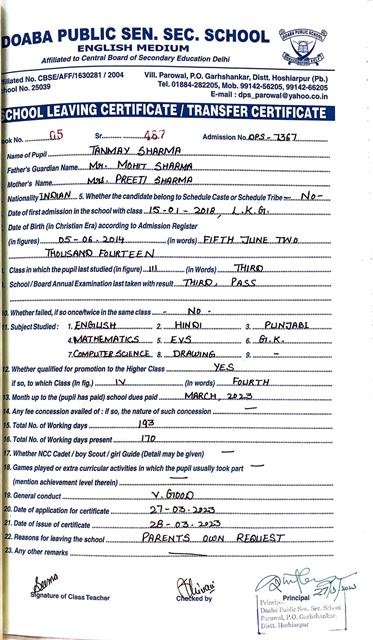 DOABA PUBLIC SEN. SEC. SCHOOL
ENGLISH MEDIUM
Affiliated to Central Board of Secondary Education Delhi
filiated No. CBSE/AFF/1630281 / 2004
hool No. 25039
Vill. Parowal, P.O. Garhshankar, Distt. Hoshiarpur (Pb.)
Tel. 01884-282205, Mob. 99142-56205, 99142-66205
E-mail : dps_parowal@yahoo.co.in
SCHOOL LEAVING CERTIFICATE / TRANSFER CERTIFICATE
ook No. 05 Sr. 467 Admission No. DPS-7367
Name of Pupil TANMAY SHARMA
Father's Guardian Name MR. MOHIT SHARMA
Mother's Name MRS. PREETI SHARMA
Nationality INDIAN 5. Whether the candidate belong to Schedule Caste or Schedule Tribe - No-
Date of first admission in the school with class 15-01-2018, L.K.G.
Date of Birth (in Christian Era) according to Admission Register
(in figures) 05-06-2014 (in words) FIFTH JUNE TWO
THOUSAND FOURTEEN
Class in which the pupil last studied (in figure) III (in Words) THIRD
School / Board Annual Examination last taken with result THIRD, PASS
10. Whether failed, if so once/twice in the same class - NO -
11. Subject Studied : 1. ENGLISH 2. HINDI 3. PUNJABI
4. MATHEMATICS 5. EVS 6. G.K.
7. COMPUTER SCIENCE 8. DRAWING 9. -
12. Whether qualified for promotion to the Higher Class YES
if so, to which Class (in fig.) IV (in Words) FOURTH
13. Month up to the (pupil has paid) school dues paid MARCH, 2023
14. Any fee concession availed of : if so, the nature of such concession —
15. Total No. of Working days 193
16. Total No. of Working days present 170
17. Whether NCC Cadet / boy Scout / girl Guide (Detail may be given) —
18. Games played or extra curricular activities in which the pupil usually took part —
(mention achievement level therein) —
19. General conduct V. GOOD
20. Date of application for certificate 27-03-2023
21. Date of issue of certificate 28-03-2023
22. Reasons for leaving the school PARENTS OWN REQUEST
23. Any other remarks —
Seema
Signature of Class Teacher
Checked by
Principal
Principal
Doaba Public Sen. Sec. School
Parowal, P.O. Garhshankar,
Distt. Hoshiarpur